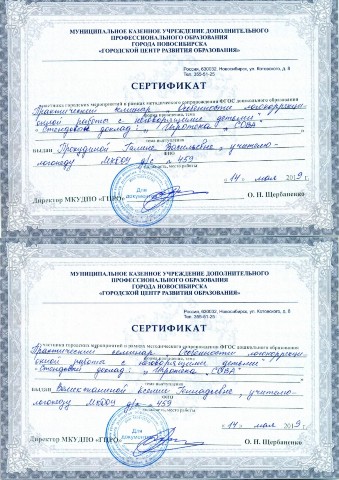 МУНИЦИПАЛЬНОЕ КАЗЕННОЕ УЧРЕЖДЕНИЕ ДОПОЛНИТЕЛЬНОГО
ПРОФЕССИОНАЛЬНОГО ОБРАЗОВАНИЯ
ГОРОДА НОВОСИБИРСКА
"ГОРОДСКОЙ ЦЕНТР РАЗВИТИЯ ОБРАЗОВАНИЯ"
Россия, 630032, Новосибирск, ул. Котовского, д. 8
Тел. 355-51-25
СЕРТИФИКАТ
Участника городских мероприятий в рамках методического сопровождения ФГОС дошкольного образования
Практический семинар „Особенности логокоррекци-
онной работы с неговорящими детьми"
форма мероприятия, тема
"Стендовый доклад: „Игротека „СОВА"
тема выступления
выдан Прокудиной Галине Васильевне, учителю-
ФИО
логопеду МКДОУ д/с № 459
должность, место работы
Для документов
«14» мая 2019 г.
Директор МКУДПО «ГЦРО» О. Н. Щербаненко
МУНИЦИПАЛЬНОЕ КАЗЕННОЕ УЧРЕЖДЕНИЕ ДОПОЛНИТЕЛЬНОГО
ПРОФЕССИОНАЛЬНОГО ОБРАЗОВАНИЯ
ГОРОДА НОВОСИБИРСКА
"ГОРОДСКОЙ ЦЕНТР РАЗВИТИЯ ОБРАЗОВАНИЯ"
Россия, 630032, Новосибирск, ул. Котовского, д. 8
Тел. 355-51-25
СЕРТИФИКАТ
Участника городских мероприятий в рамках методического сопровождения ФГОС дошкольного образования
Практический семинар „Особенности логокоррекци-
онной работы с неговорящими детьми
"Стендовый доклад: „Игротека „СОВА"
тема выступления
выдан Ксении Геннадьевне, учителю-
ФИО
логопеду МКДОУ д/с № 459
должность, место работы
Для документов
«14» мая 2019 г.
Директор МКУДПО «ГЦРО» О. Н. Щербаненко